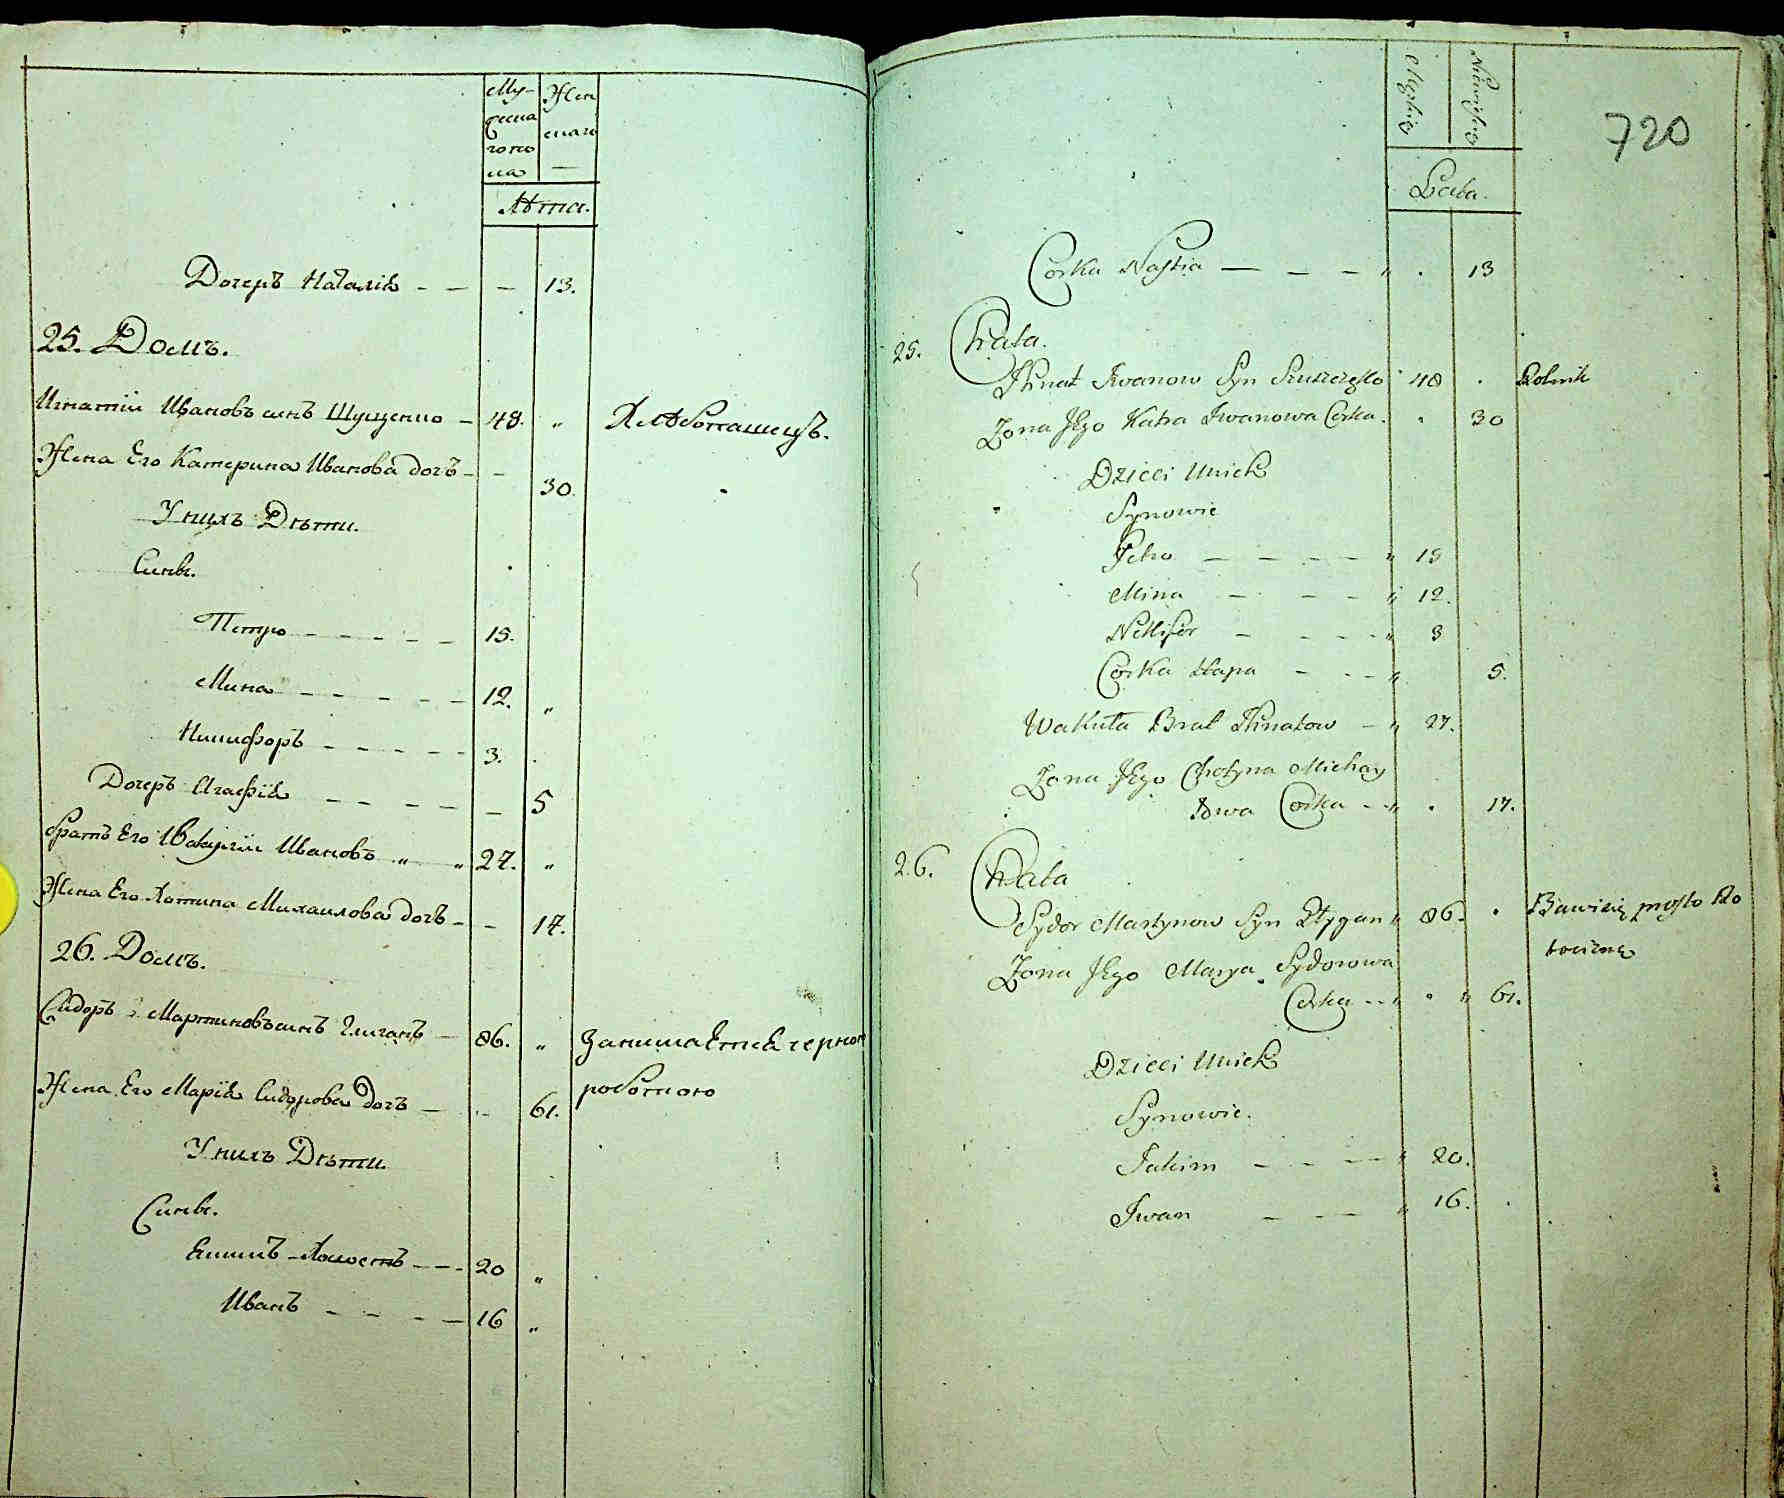 Му-
ческа
го по
ла
Жен
скаго
Лѣта.
Дочеръ Наталія — — — 13.
25. Домъ.
Игнатій Ивановъ синъ Шущенко — 48. „ Хлѣбопашецъ.
Жена Его Катерина Иванова дочъ — — 30.
У нихъ Дѣти.
Сини.
Петро — — — — — 15.
Мина — — — — — 12. „
Никифоръ — — — — — 3.
Дочеръ Агафія — — — — — 5
братъ Его Вакулій Ивановъ „ „ 27. „
Жена Его Хотина Михаилова дочъ — — 17.
26. Домъ.
Сидоръ Мартиновъ синъ Циганъ — 86. „ Занимаетися черною
роботою
Жена Его Марія Сидорова дочъ — — 61.
У нихъ Дѣти.
Сини.
Екимъ — — — 20 „
Иванъ — — — — 16 „
720
Męskie
Niewieskie
Lata.
Corka Nastia — — — „ . 13
25. Chata.
Ihnat Iwanow Syn Szuszczęko 48 . Rolnik
Zona Jego Katra Iwanowa Corka . . 30
Dzieci Unich
Synowie
Petro — — — — — „ 15
Mina — — — „ 12.
Nekifor — — — — „ 3
Corka Hapa — — — „ 5.
Wakuła Brat Ihnatow — „ 27.
Zona Jego Chotyna Michay
łowa Corka — „ . 17.
26. Chata
Sydor Martynow Syn Cygan „ 86. . Bawi się prosto Ro
bocizną
Zona Jego Marya Sydorowa
Corka — „ . „ 61.
Dzieci Unich
Synowie.
Jakim — — — — „ 20.
Iwan — — — „ 16.